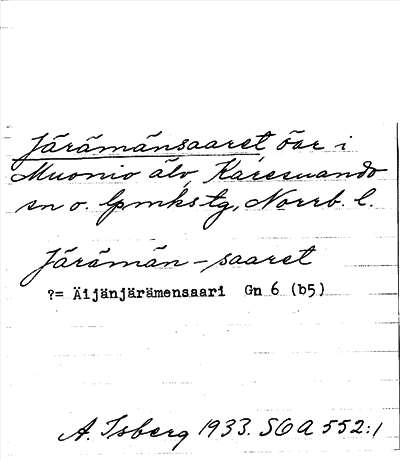 Järämänsaaret, öar i
Muonio älv, Karesuando
sn o. lpmkstg, Norrb. l.
Järämän-saaret
?= Äijänjärämensaari Gn 6 (b5)
A. Isberg 1933. SOA 552:1